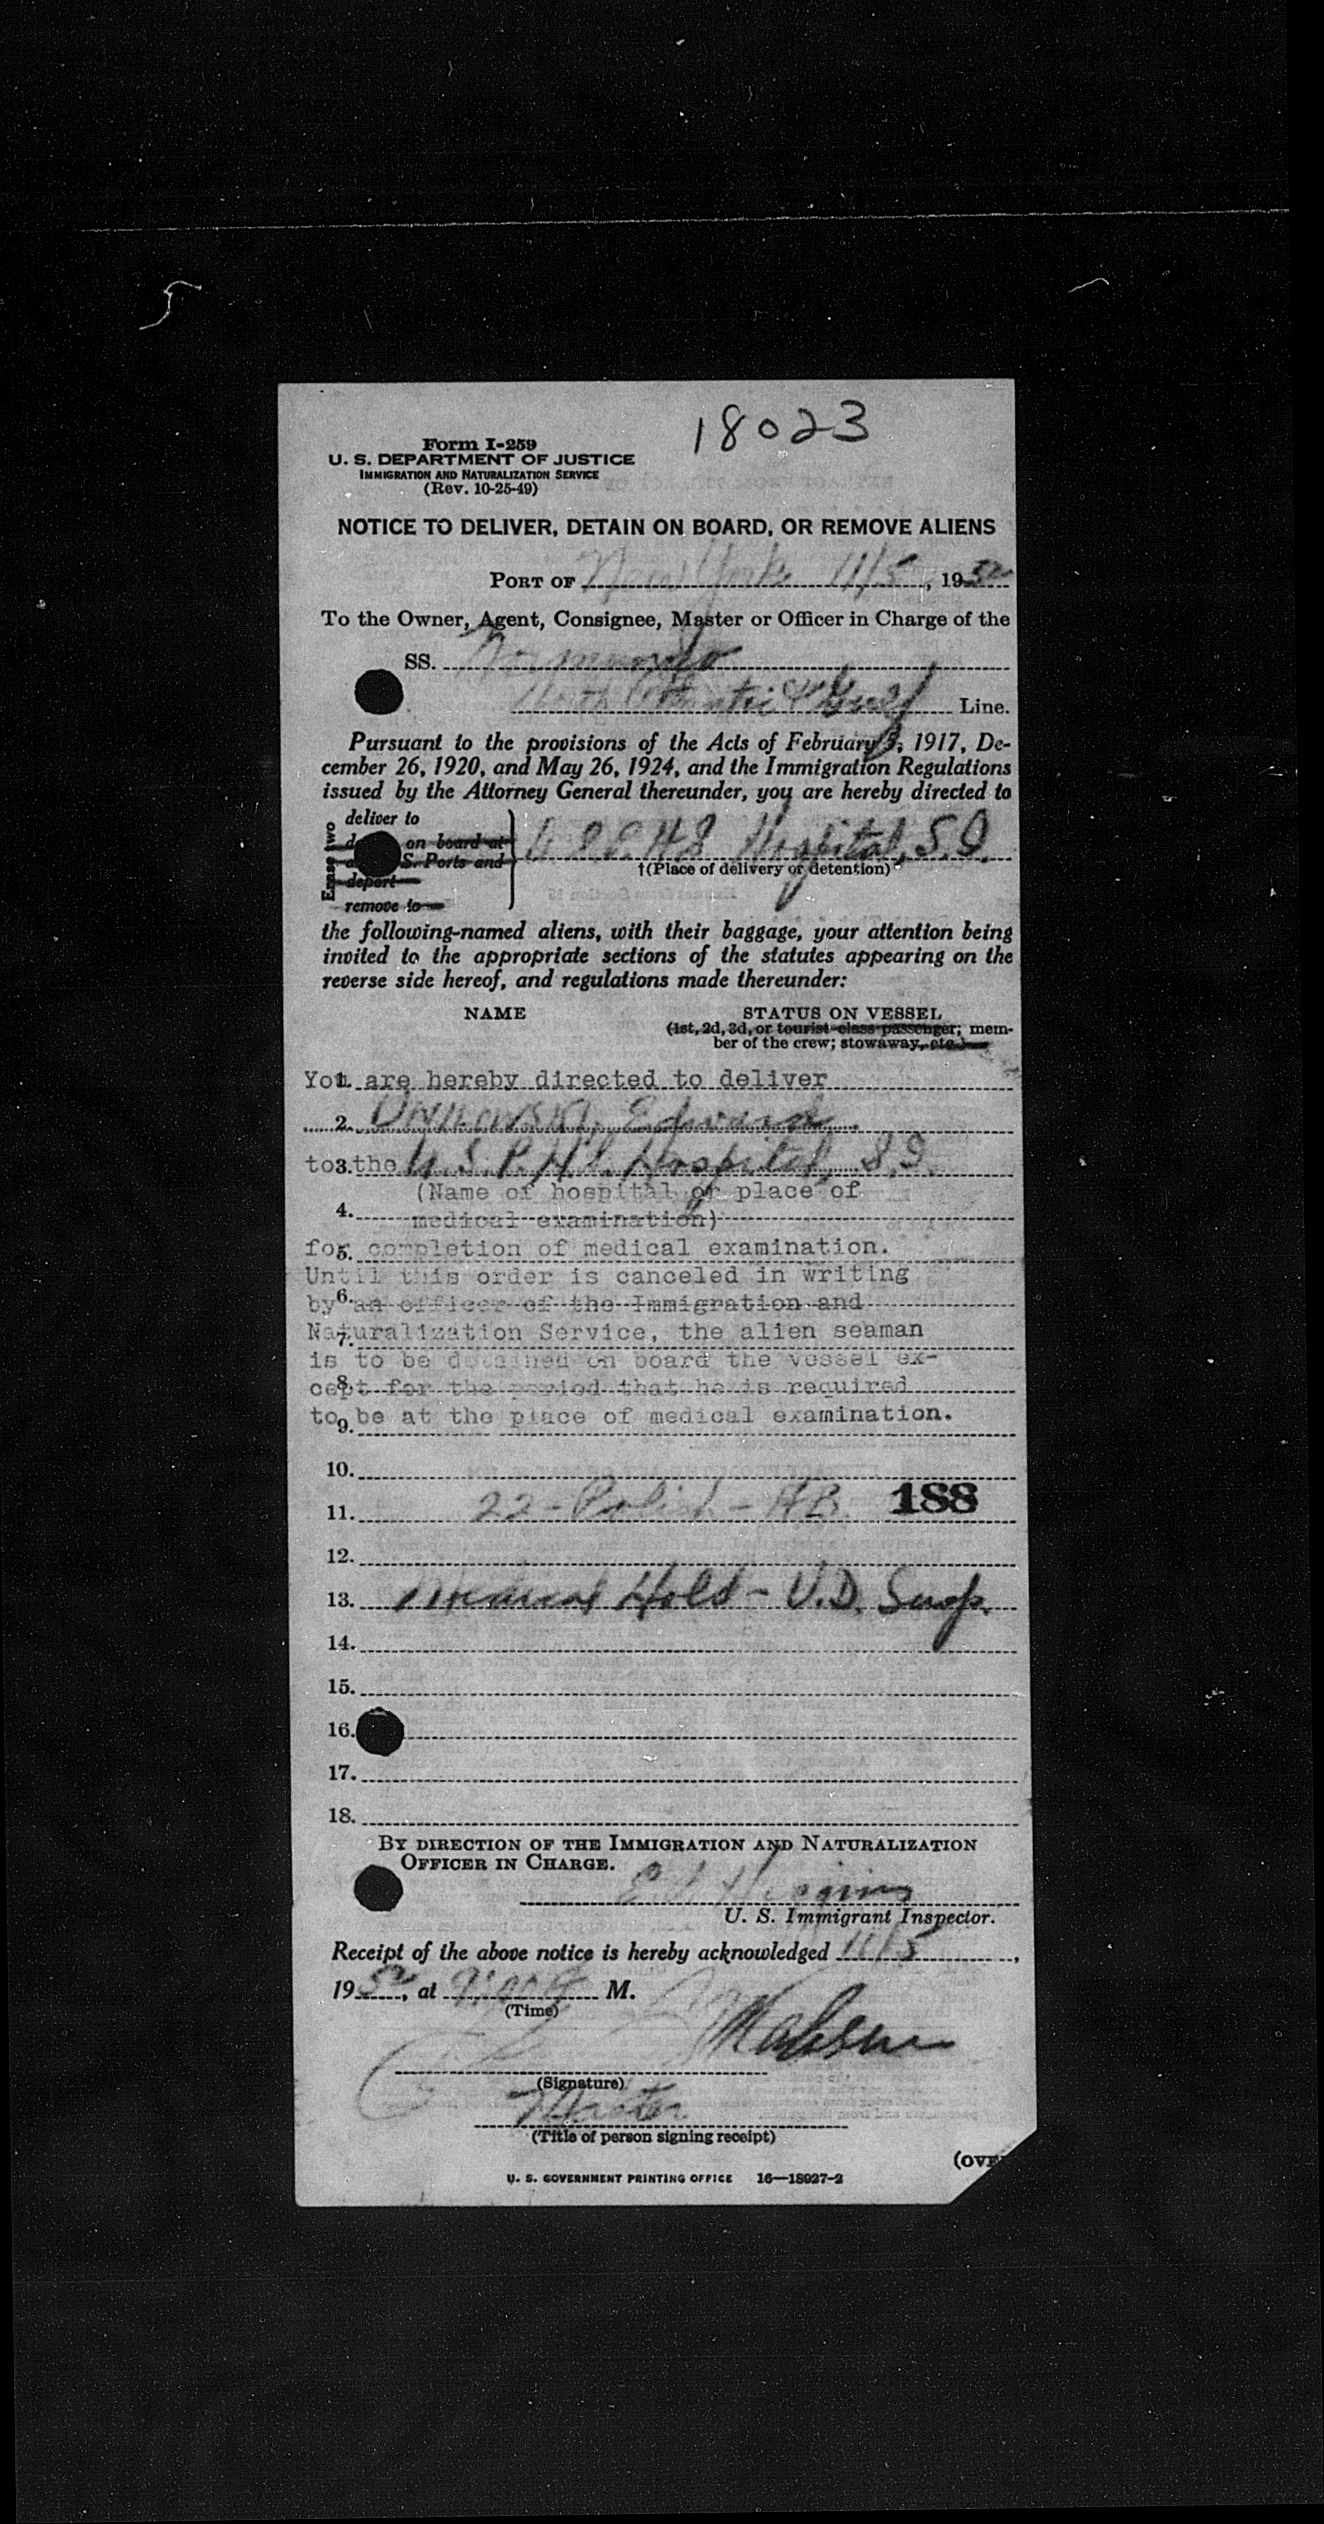 18023
Form I-259
U. S. DEPARTMENT OF JUSTICE
IMMIGRATION AND NATURALIZATION SERVICE
(Rev. 10-25-49)
NOTICE TO DELIVER, DETAIN ON BOARD, OR REMOVE ALIENS
PORT OF New York 11/5, 1952
To the Owner, Agent, Consignee, Master or Officer in Charge of the
SS.
North Atlantic & Gulf Line.
Pursuant to the provisions of the Acts of February 5, 1917, De-
cember 26, 1920, and May 26, 1924, and the Immigration Regulations
issued by the Attorney General thereunder, you are hereby directed to
Erase two
deliver to
on board at
S. Ports and
deport
remove to
U.S.P.H.S. Hospital, S.I.
†(Place of delivery or detention)
the following-named aliens, with their baggage, your attention being
invited to the appropriate sections of the statutes appearing on the
reverse side hereof, and regulations made thereunder:
NAME STATUS ON VESSEL
(1st, 2d, 3d, or tourist-class passenger; mem-
ber of the crew; stowaway, etc.)
1. You are hereby directed to deliver
2. Edward
3. to the U.S.P.H.S. Hospital, S.I.
(Name of hospital or place of
4. medical examination)
5. for completion of medical examination.
Until this order is canceled in writing
6. by an officer of the Immigration and
7. Naturalization Service, the alien seaman
is to be detained on board the vessel ex-
8. cept for the period that he is required
9. to be at the place of medical examination.
10.
11. 22 - Polish - AB 188
12.
13. Medical Hold - V.D. Susp.
14.
15.
16.
17.
18.
BY DIRECTION OF THE IMMIGRATION AND NATURALIZATION
OFFICER IN CHARGE.
Higgins
U. S. Immigrant Inspector.
Receipt of the above notice is hereby acknowledged 11/5,
1952, at M.
(Time)
(Signature)
Master
(Title of person signing receipt)
(OVE
U. S. GOVERNMENT PRINTING OFFICE 16—18927-2